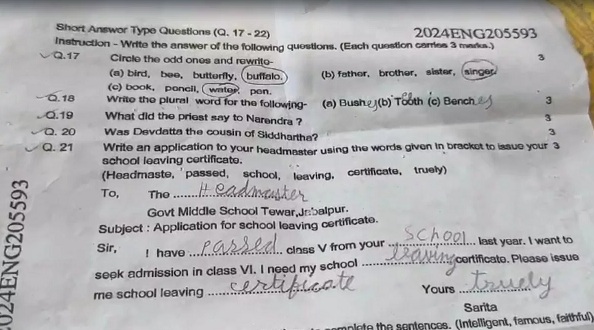 Short Answer Type Questions (Q. 17 - 22)
2024ENG205593
Instruction - Write the answer of the following questions. (Each question carries 3 marks.)
Q.17 Circle the odd ones and rewrite- 3
(a) bird, bee, butterfly, buffalo, (b) father, brother, sister, singer
(c) book, pencil, water, pen.
Q.18 Write the plural word for the following- (a) Bushes (b) Tooth (c) Benches 3
Q.19 What did the priest say to Narendra ? 3
Q. 20 Was Devdatta the cousin of Siddhartha? 3
Q. 21 Write an application to your headmaster using the words given in bracket to issue your 3
school leaving certificate.
(Headmaste, passed, school, leaving, certificate, truely)
To, The ......Headmaster
Govt Middle School Tewar, Jabalpur.
Subject : Application for school leaving certificate.
Sir, I have passed class V from your school last year. I want to
seek admission in class VI. I need my school leaving certificate. Please issue
me school leaving certificate Yours truely
Sarita
complete the sentences. (Intelligent, famous, faithful)
2024ENG205593